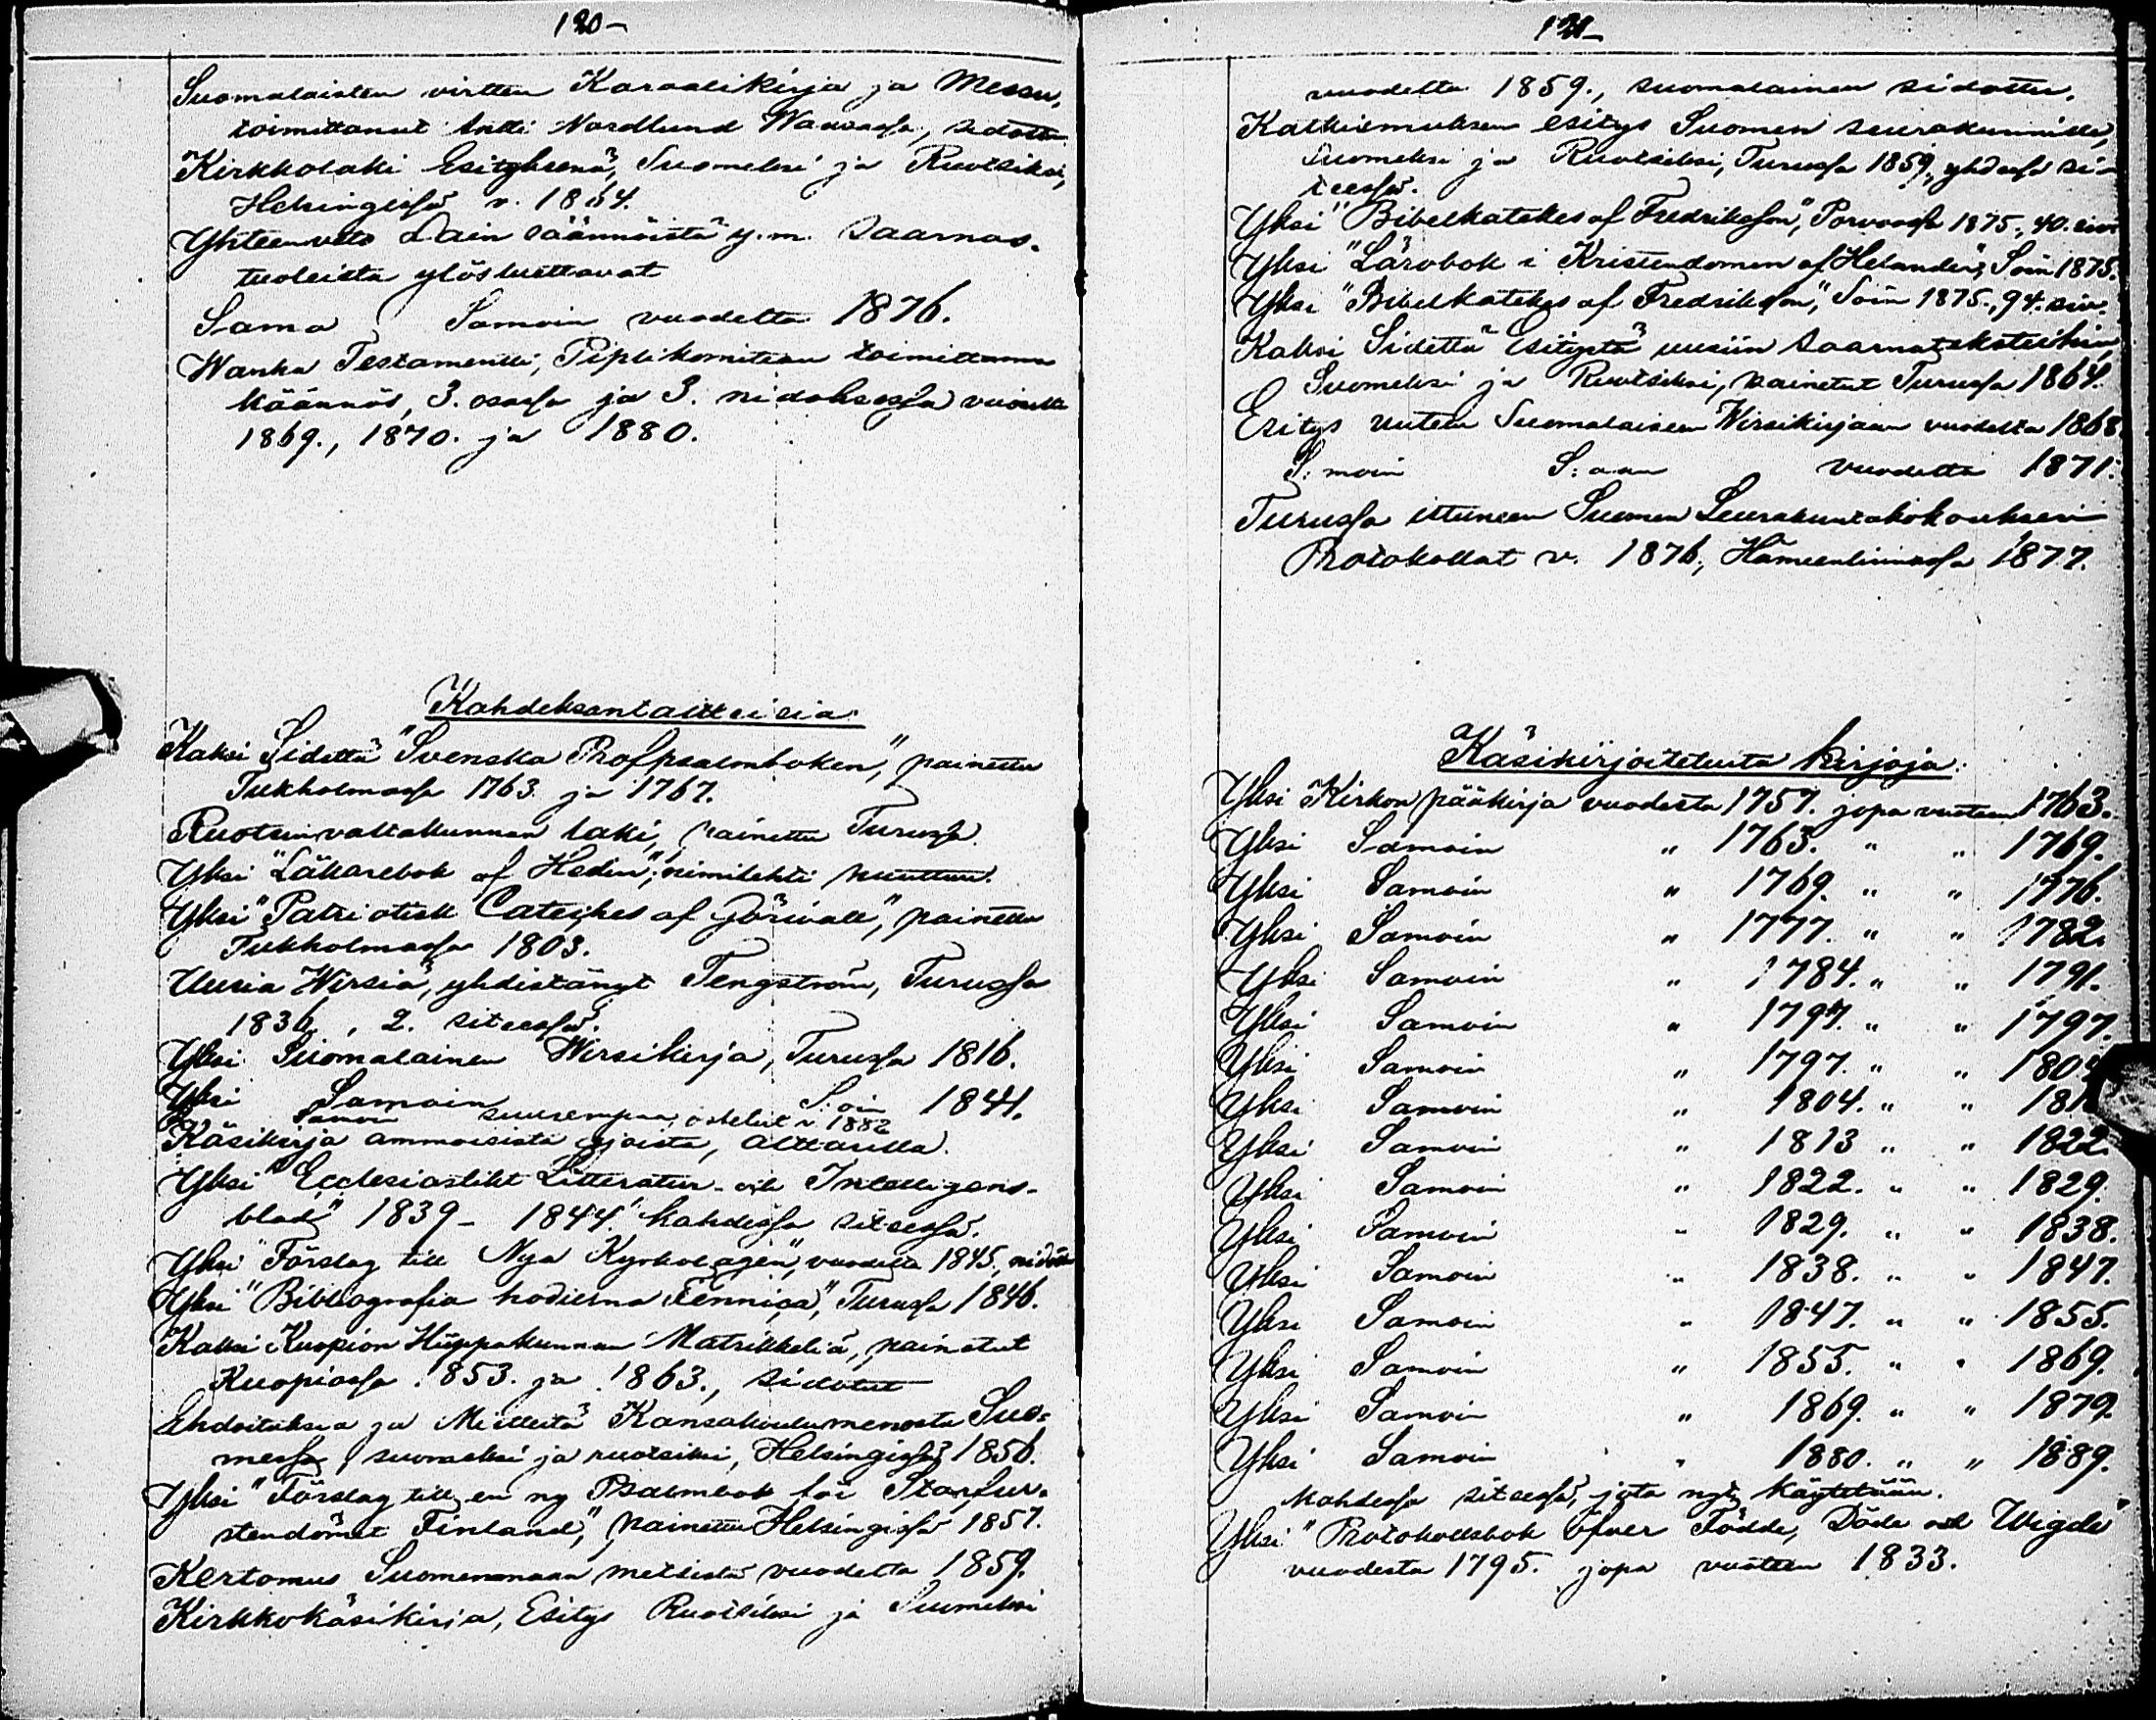 120-
Suomalaisten virtten Koraalikirja ja Messu,
toimittanut Antti Nordlund Waasassa, sidottu
Kirkkolaki Esityksenä, Suomeksi ja Ruotsiksi,
Helsingissä v. 1864.
Yhteenveto Lain säännöistä y.m. Saarnas-
tuoleista ylösluettavat
Sama Samoin vuodelta 1876.
Wanha Testamentti, Piplikomitean toimittama
käännös, 3. osassa ja 3. nidoksessa vuosilta
1869., 1870. ja 1880.
Kahdeksantaitteisia.
Kaksi Sidettä "Svenska Profpsalmboken", painettu
Tukholmassa 1763. ja 1767.
Ruotsinvaltakunnan laki, painettu Turussa.
Yksi "Läkarebok af Hedin", nimilehti puuttuu.
Yksi "Patriotisk Cateches af Görwall", painettu
Tukholmassa 1803.
Uusia Wirsiä, yhdistänyt Tengström, Turussa
1836., 2. siteessä.
Yksi Suomalainen Wirsikirja, Turussa 1816.
Yksi Samoin S:oin 1841.
Samoin suurempaa, ostetut v. 1882
Käsikirja ammoisista ajoista, alttarilla.
Yksi "Ecclesiastikt Litteratur- och Intelligens-
blad" 1839- 1844. kahdessa siteessä.
Yksi "Förslag till Nya Kyrkolagen", vuodelta 1845, nidottu
Yksi "Bibliografia hodierna Fennica", Turussa 1846.
Kaksi Kuopion Hiippakunnan Matrikkeliä, painetut
Kuopiossa 1853. ja 1863., sidotut
Ehdoituksia ja Mietteitä Kansakoulumenosta Suo-
messa suomeksi ja ruotsiksi, Helsingissä 1856.
Yksi "Förslag till en ny Psalmbok för Storfur-
stendömet Finland", painettu Helsingissä 1857.
Kertomus Suomenmaan metsistä vuodelta 1859.
Kirkkokäsikirja, Esitys Ruotsiksi ja Suomeksi
121-
vuodelta 1859., suomalainen sidottu.
Katkismuksen esitys Suomen seurakunnille,
Suomeksi ja Ruotsiksi, Turussa 1859., yhdessä si-
teessä.
Yksi "Bibelkatekes af Fredrikson", Porvoossa 1875., 40. siv.
Yksi "Lärobok i Kristendomen af Helander", S:oin 1875.
Yksi "Bibelkatekes af Fredrikson", S:oin 1875., 94. siv.
Kaksi Sidettä Esitystä uusiin Saarnateksteihin,
Suomeksi ja Ruotsiksi, painetut Turussa 1864.
Esitys uuteen Suomalaiseen Wirsikirjaan vuodelta 1868.
S:moin S:aan vuodelta 1871.
Turussa istuneen Suomen Seurakuntakokouksen
Protokollat v. 1876, Hämeenlinnassa 1877.
Käsikirjoitetuita kirjoja.
Yksi Kirkon pääkirja vuodesta 1757. jopa vuoteen 1763.
Yksi Samoin " 1763. " " 1769.
Yksi Samoin " 1769. " " 1776.
Yksi Samoin " 1777. " " 1782.
Yksi Samoin " 1784. " " 1791.
Yksi Samoin " 1791. " " 1797.
Yksi Samoin " 1797. " " 1804
Yksi Samoin " 1804. " " 181
Yksi Samoin " 1813 " " 1822.
Yksi Samoin " 1822. " " 1829.
Yksi Samoin " 1829. " " 1838.
Yksi Samoin " 1838. " " 1847.
Yksi Samoin " 1847. " " 1855.
Yksi Samoin " 1855. " " 1869.
Yksi Samoin " 1869. " " 1879.
Yksi Samoin " 1880. " " 1889.
kahdessa siteessä, jota nyt käytetään.
Yksi "Protokollsbok öfver Födde, Döde och Wigde"
vuodesta 1795. jopa vuoteen 1833.